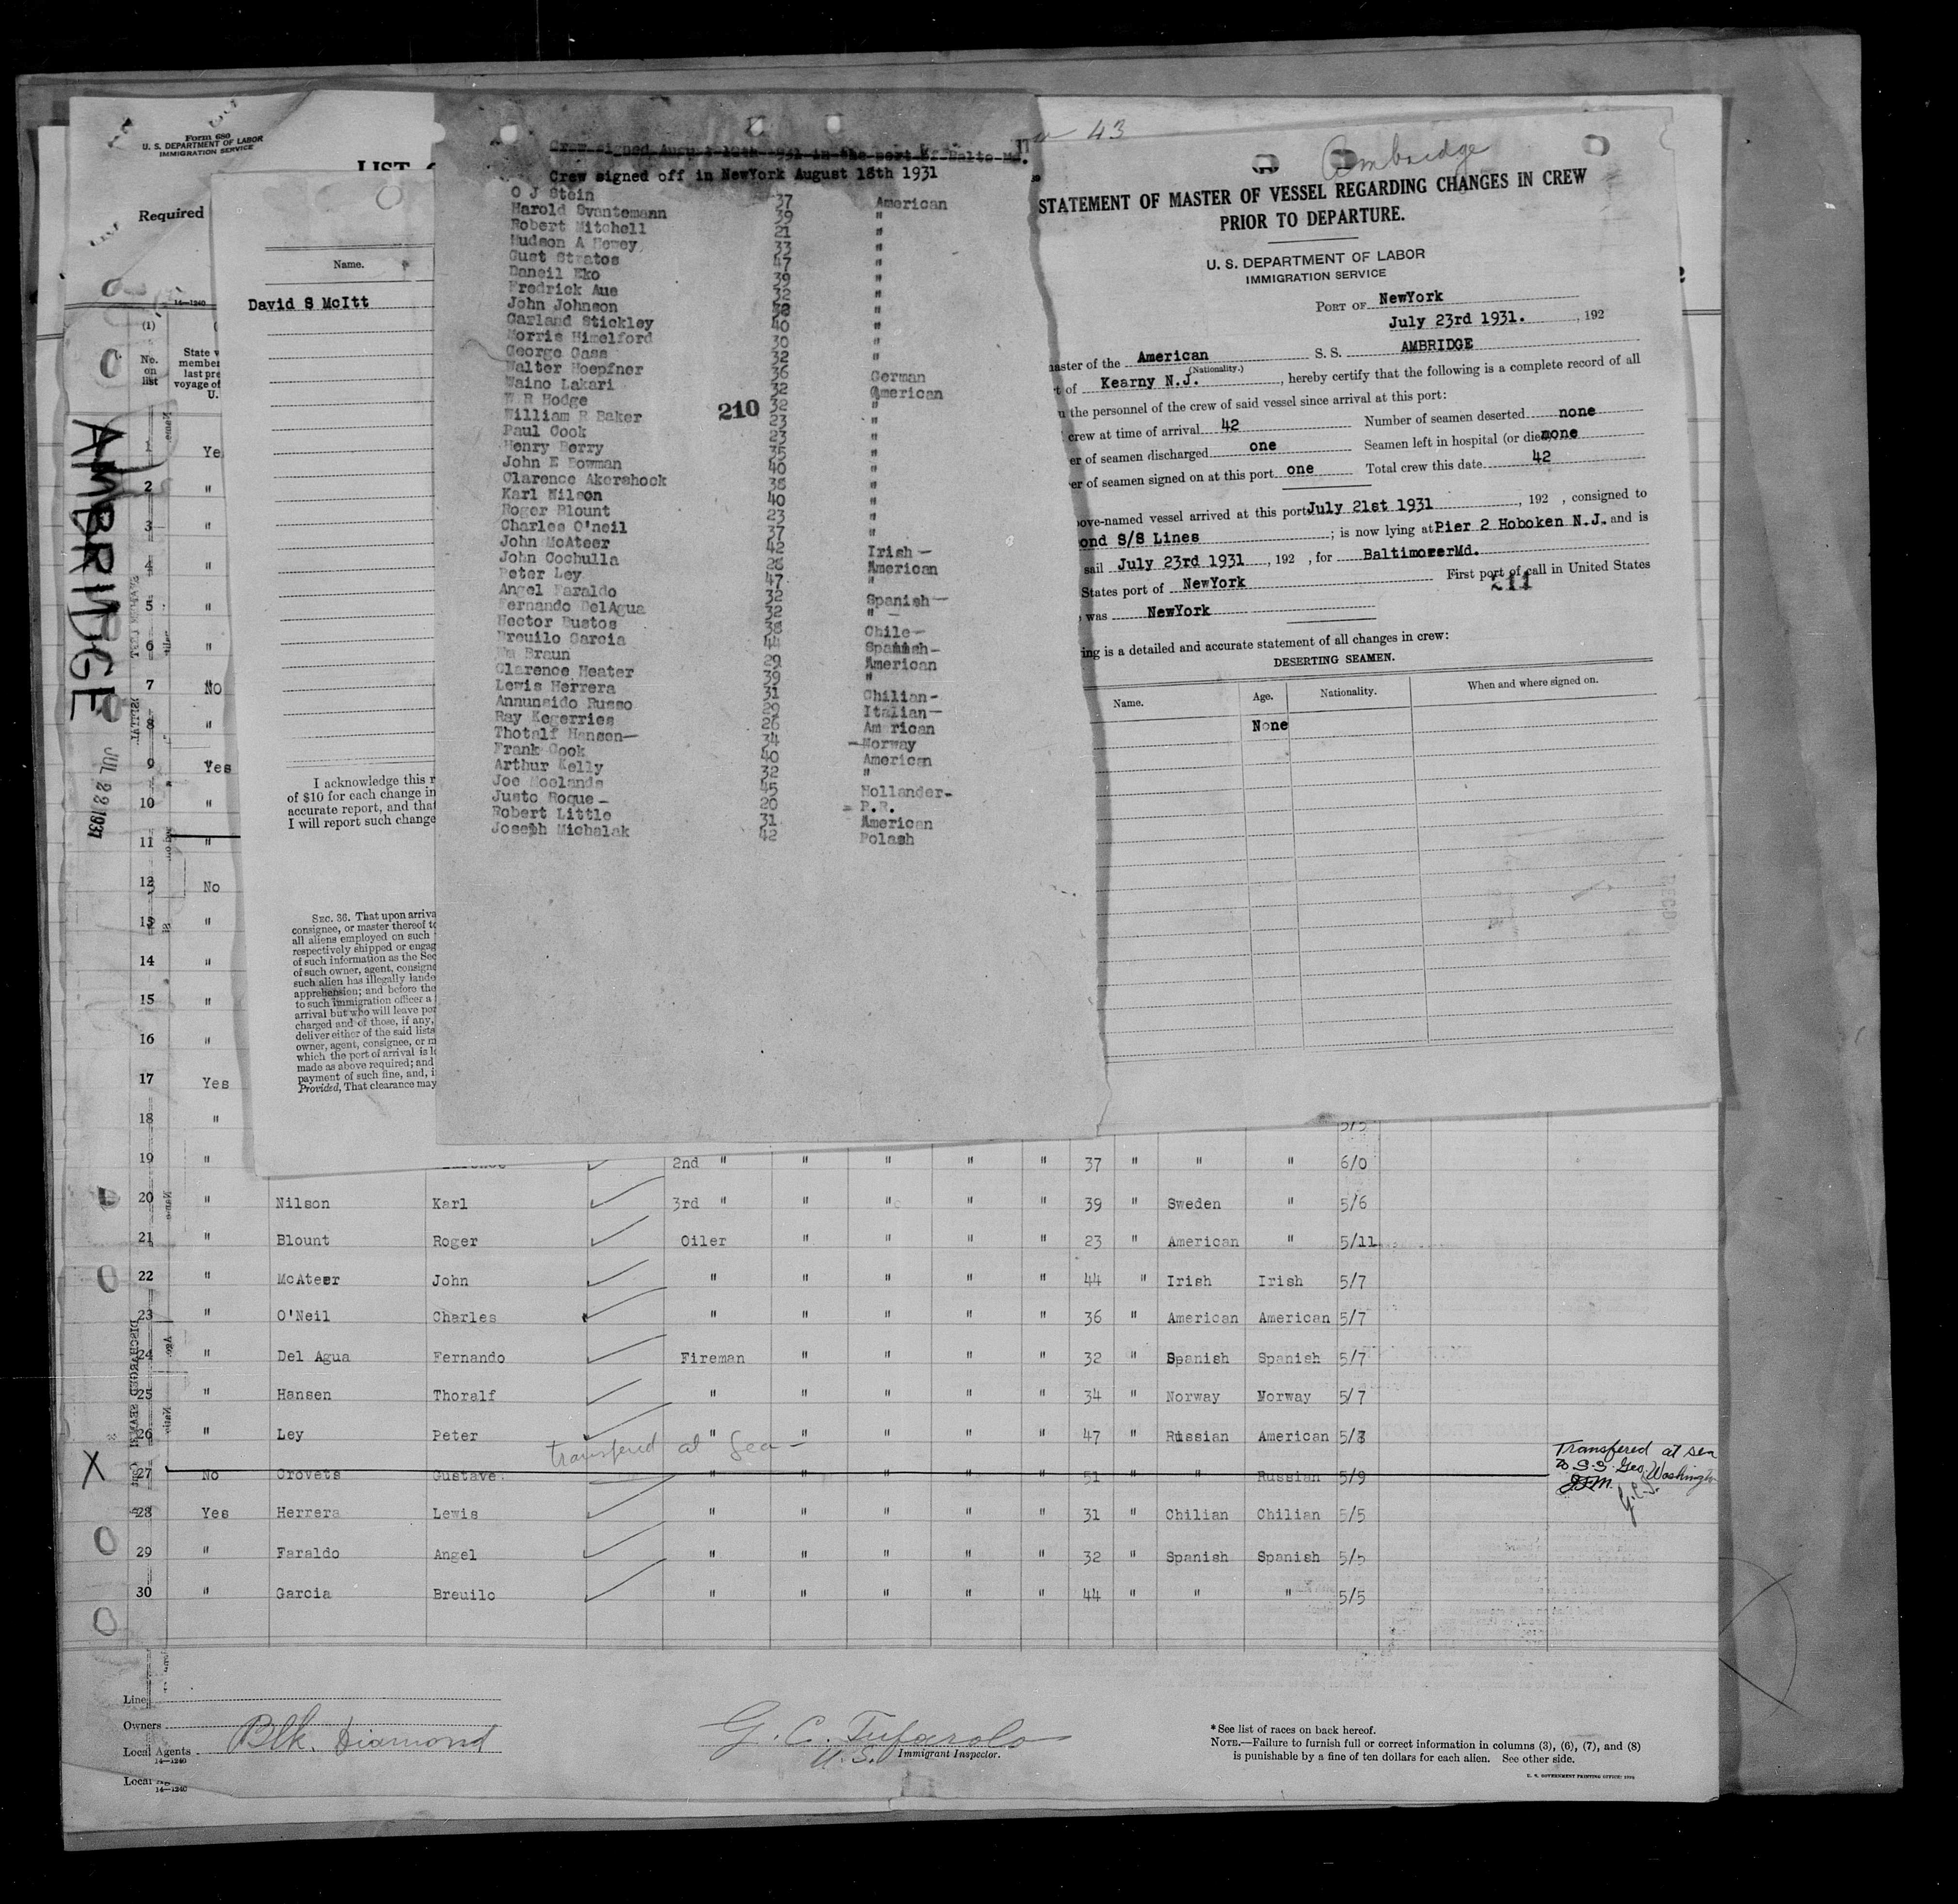 Form 680
U. S. DEPARTMENT OF LABOR
IMMIGRATION SERVICE
LIST
Required
14—1240
(1)
No.
on
list
State
member
last pre
voyage of
U.
AMBRIDGE
JUL 22 1931
1 Ye
2 "
3 "
4 "
5 "
6 "
7 No
8 "
9 Yes
10 "
11 "
12 No
13 "
14 "
15 "
16 "
17 Yes
18 "
Name.
David S McItt
I acknowledge this r
of $10 for each change in
accurate report, and that
I will report such change
SEC. 36. That upon arriva
consignee, or master thereof to
all aliens employed on such
respectively shipped or engag
of such information as the Sec
of such owner, agent, consigne
such alien has illegally lande
apprehension; and before the
to such immigration officer a
arrival but who will leave por
charged and of those, if any,
deliver either of the said lists
owner, agent, consignee, or m
which the port of arrival is lo
made as above required; and
payment of such fine, and, i
Provided, That clearance may
Crew signed August 10th 931 in the port of Balto Md.
Crew signed off in NewYork August 18th 1931
O J Stein 37 American
Harold Svantemann 39 "
Robert Mitchell 21 "
Hudson A Hewey 33 "
Gust Stratos 47 "
Daneil Eko 39 "
Fredrick Aue 32 "
John Johnson "
Garland Stickley 40 "
Morris Himelford 30 "
George Cass 32 "
Walter Hoepfner 36 German
Waino Lakari 32 American
W R Hodge 32 "
210
William R Baker 23 "
Paul Cook 23 "
Henry Berry 35 "
John E Bowman 40 "
Clarence Akershock 38 "
Karl Nilson 40 "
Roger Blount 23 "
Charles O'neil 37 "
John McAteer 42 Irish —
John Cochulla 28 American
Peter Ley 47 "
Angel Faraldo 32 Spanish —
Fernando DelAgua 32 " —
Hector Bustos 38 Chile —
Breuilo Garcia 44 Spanish -
Wm Braun 29 American
Clarence Heater 39 "
Lewis Herrera 31 Chilian -
Annunsido Russo 29 Italian —
Ray Kegerries 26 American
Thotalf Hansen — 34 — Norway
Frank Cook 40 American
Arthur Kelly 32 "
Joe Moelands 45 Hollander -
Justo Roque — 20 = P.R.
Robert Little 31 American
Joseph Michalak 42 Polash
43
Ambridge
STATEMENT OF MASTER OF VESSEL REGARDING CHANGES IN CREW
PRIOR TO DEPARTURE.
U. S. DEPARTMENT OF LABOR
IMMIGRATION SERVICE
PORT OF NewYork
July 23rd 1931. , 192
aster of the American S. S. AMBRIDGE
(Nationality.)
t of Kearny N.J. , hereby certify that the following is a complete record of all
the personnel of the crew of said vessel since arrival at this port:
crew at time of arrival 42 Number of seamen deserted none
er of seamen discharged one Seamen left in hospital (or died) none
er of seamen signed on at this port one Total crew this date 42
ove-named vessel arrived at this port July 21st 1931 , 192 , consigned to
ond S/S Lines ; is now lying at Pier 2 Hoboken N.J. and is
sail July 23rd 1931 , 192 , for Baltimorer Md.
States port of NewYork First port of call in United States
211
was NewYork
ing is a detailed and accurate statement of all changes in crew:
DESERTING SEAMEN.
Name. Age. Nationality. When and where signed on.
None
19 " 2nd " " " " " 37 " " " 6/0
20 " Nilson Karl 3rd " " " " " 39 " Sweden " 5/6
21 " Blount Roger Oiler " " " " 23 " American " 5/11
22 " McAteer John " " " " " 44 " Irish Irish 5/7
23 " O'Neil Charles " " " " " 36 " American American 5/7
24 " Del Agua Fernando Fireman " " " " 32 " Spanish Spanish 5/7
25 " Hansen Thoralf " " " " " 34 " Norway Norway 5/7
26 " Ley Peter " " " " " 47 " Russian American 5/8
transfered at Sea —
X 27 No Crovets Gustave " " " " " 51 " " Russian 5/9
Transfered at sea
to S.S. Geo. Washington
G.C.T.
28 Yes Herrera Lewis " " " " " 31 " Chilian Chilian 5/5
29 " Faraldo Angel " " " " " 32 " Spanish Spanish 5/5
30 " Garcia Breuilo " " " " " 44 " " " 5/5
Line
Owners
Local Agents Blk. Diamond
14—1240
Local
14—1240
G. C. Tufarolo
U.S. Immigrant Inspector.
* See list of races on back hereof.
NOTE.—Failure to furnish full or correct information in columns (3), (6), (7), and (8)
is punishable by a fine of ten dollars for each alien. See other side.
U. S. GOVERNMENT PRINTING OFFICE